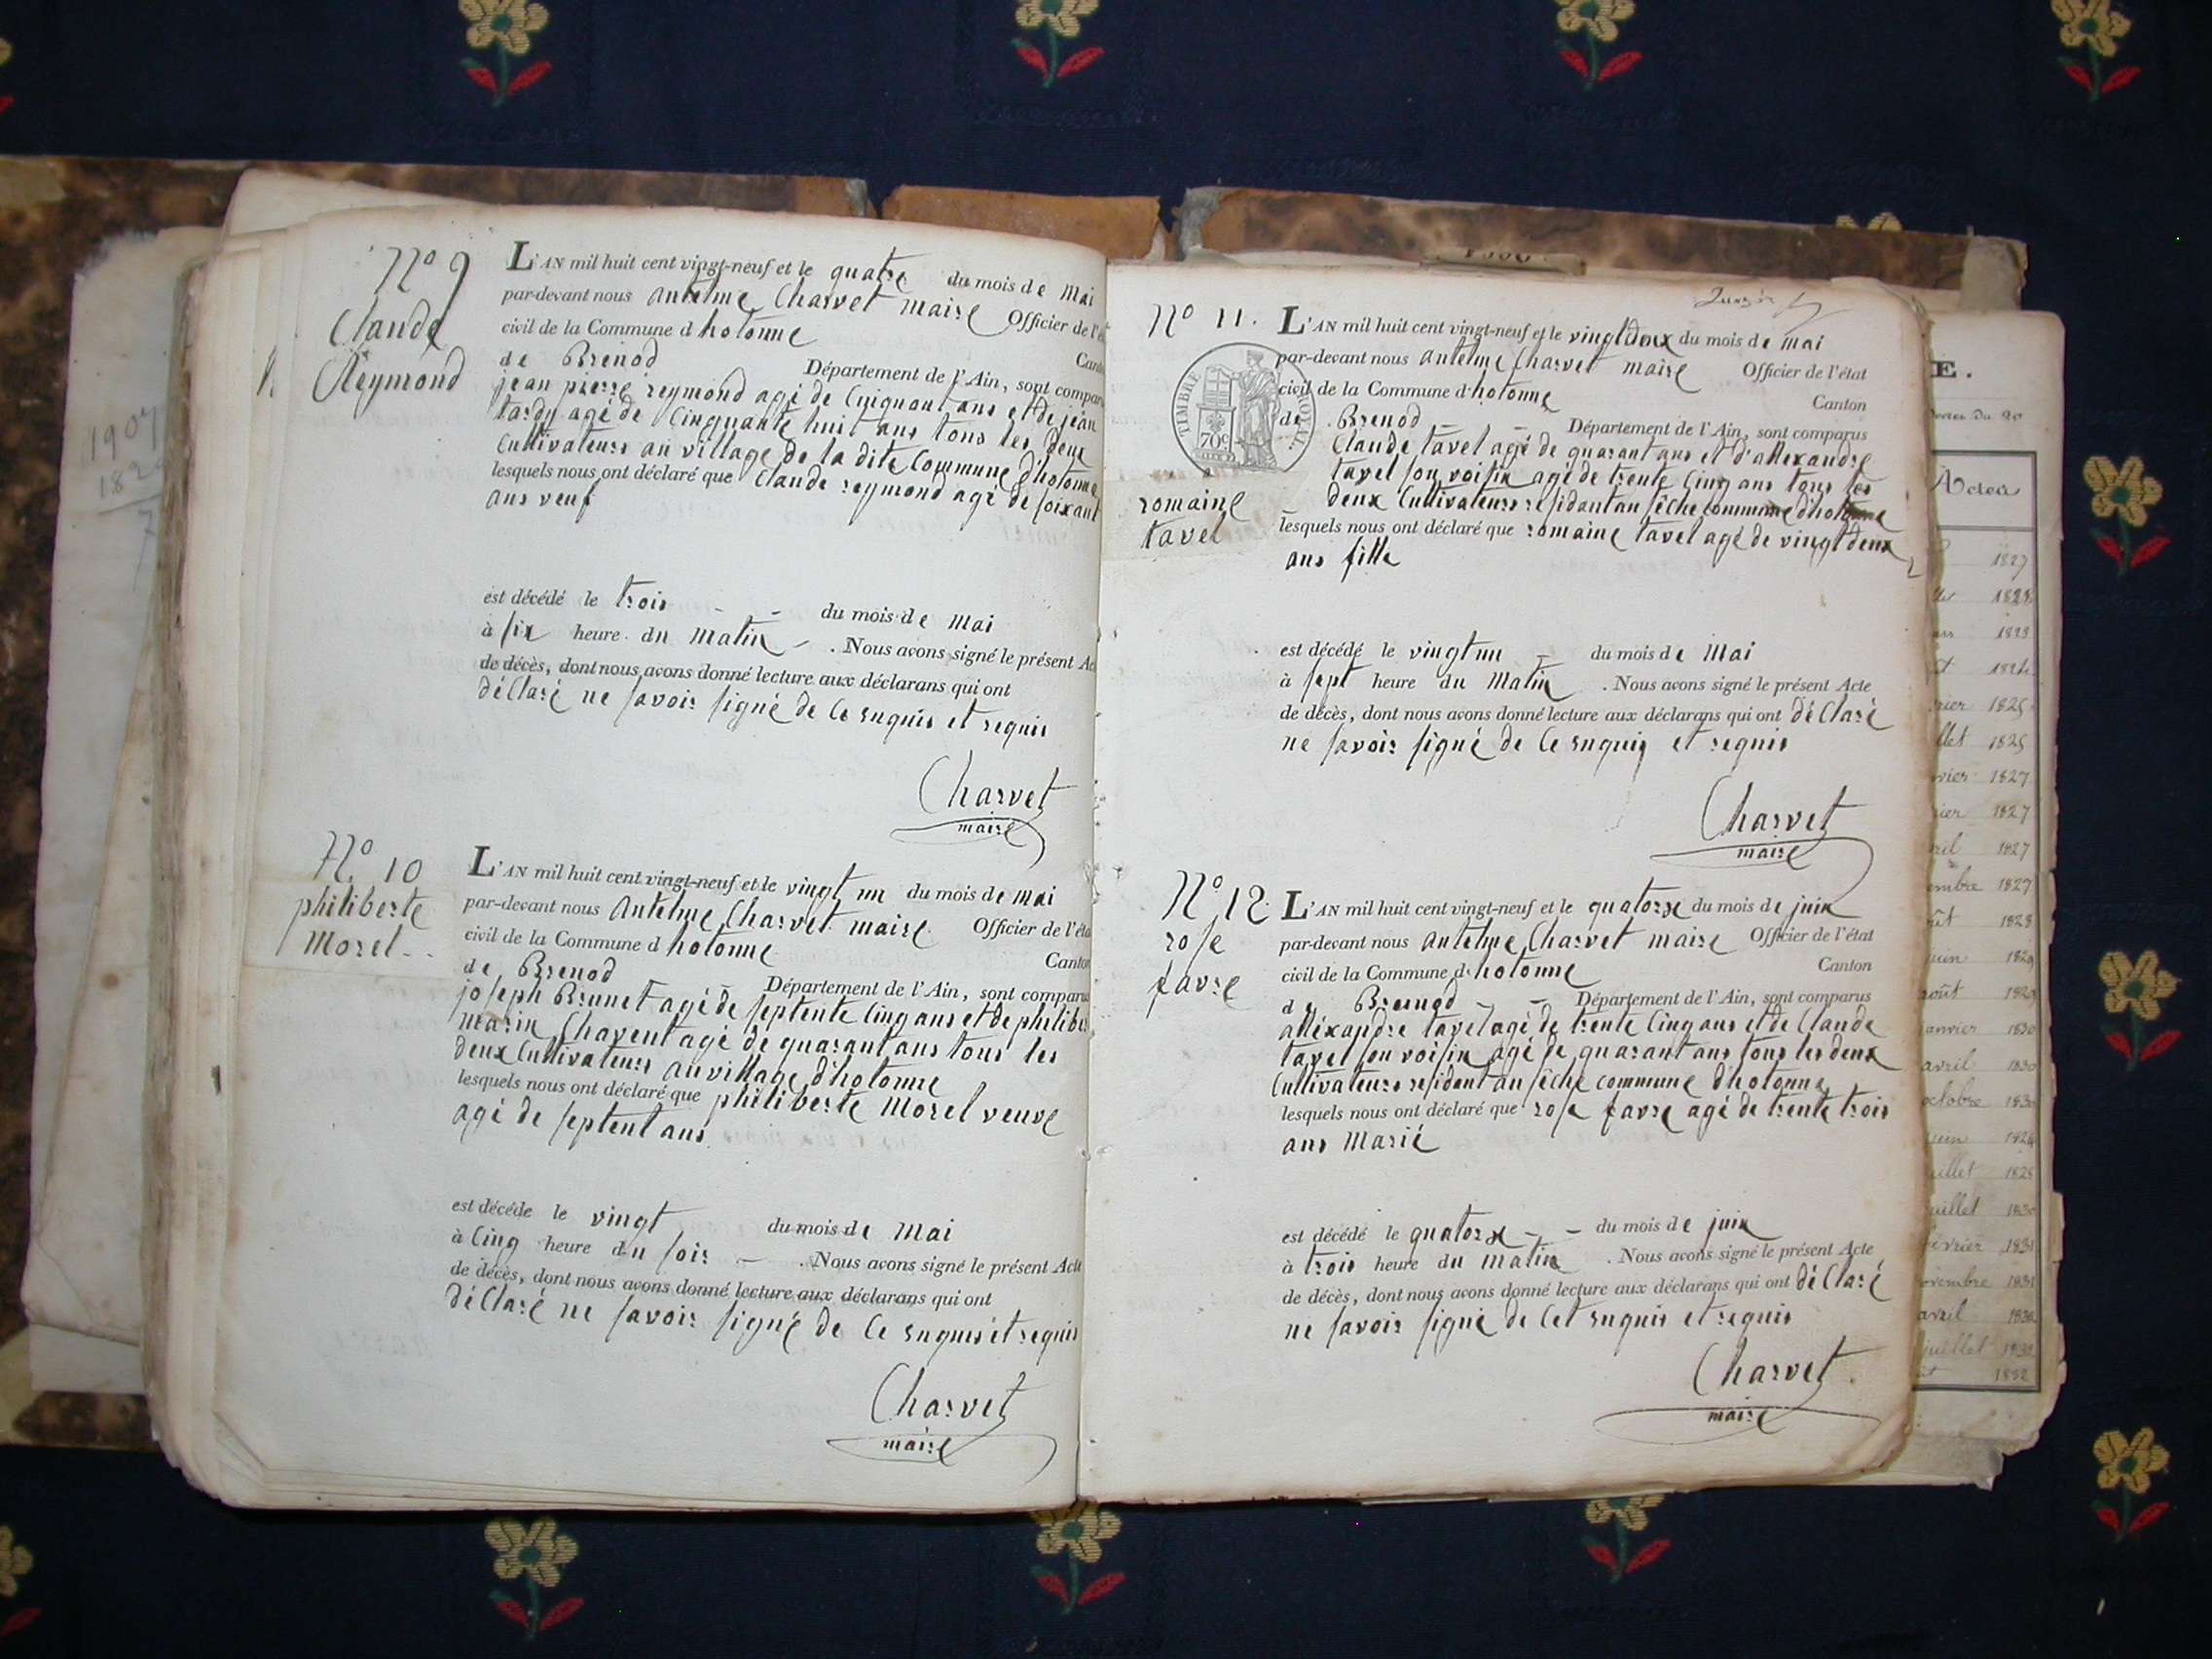 N° 9
Claude
Reymond
L'AN mil huit cent vingt-neuf et le quatre du mois de Mai
par-devant nous Antelme Charvet maire Officier de l'é
civil de la Commune d'hotonne
Cant
de Brenod Département de l'Ain, sont compar
jean pierre reymond agé de Cinquant ans et de jean
tardy agé de Cinquante huit ans tous les deux
Cultivateurs au village de la dite Commune d'hotonne
lesquels nous ont déclaré que Claude reymond agé de soixant
ans veuf
est décédé le trois - - du mois de Mai
à six heure du Matin - . Nous avons signé le présent Ac
de décès, dont nous avons donné lecture aux déclarans qui ont
déClaré ne savoir signé de Ce enquis et requis
Charvet
maire
N° 10
philiberte
Morel - -
L'AN mil huit cent vingt-neuf et le vingt un du mois de mai
par-devant nous Antelme Charvet maire Officier de l'éta
civil de la Commune d hotonne
Canton
de Brenod Département de l'Ain, sont comparus
joseph Brunet agé de septente Cinq ans et de philibe
marin Chavent agé de quarant ans tous les
deux Cultivateurs au village d'hotonne
lesquels nous ont déclaré que philiberte Morel veuve
agé de septent ans
est décédé le vingt du mois de Mai
à Cinq heure du soir - . Nous avons signé le présent Acte
de décès, dont nous avons donné lecture aux déclarans qui ont
déClaré ne savoir signé de Ce enquis et requis
Charvet
maire
N° 11.
TIMBRE ROYAL
70c
romaine
tavel
L'AN mil huit cent vingt-neuf et le vingt deux du mois de mai
par-devant nous antelme Charvet maire Officier de l'état
civil de la Commune d'hotonne
Canton
de Brenod - - Département de l'Ain, sont comparus
Claude tavel agé de quarant ans et d'allexandre
tavel son voisin agé de trente Cinq ans tous les
deux Cultivateurs residant au sêche commune d'hotonne
lesquels nous ont déclaré que romaine tavel agé de vingt deux
ans fille
est décédé le vingt un - du mois de Mai
à sept heure du Matin . Nous avons signé le présent Acte
de décès, dont nous avons donné lecture aux déclarans qui ont déClaré
ne savoir signé de Ce enquis et requis
Charvet
maire
N° 12
rose
favre
L'AN mil huit cent vingt-neuf et le quatorze du mois de juin
par-devant nous antelme Charvet maire Officier de l'état
civil de la Commune d'hotonne
Canton
de Brenod - - Département de l'Ain, sont comparus
alléxandre tavel agé de trente Cinq ans et de Claude
tavel son voisin agé de quarant ans tous les deux
Cultivateurs residant au sêche commune d'hotonne
lesquels nous ont déclaré que rose favre agé de trente trois
ans Marié
est décédé le quatorze - - du mois de juin
à trois heure du matin . Nous avons signé le présent Acte
de décès, dont nous avons donné lecture aux déclarans qui ont déClaré
ne savoir signé de Cet enquis et requis
Charvet
maire
1907
E.
Actes
1827
1828
1825
juillet 1825
1827
1827
1827
1827
1828
1830
avril 1830
octobre 1830
1831
avril
juillet
1832